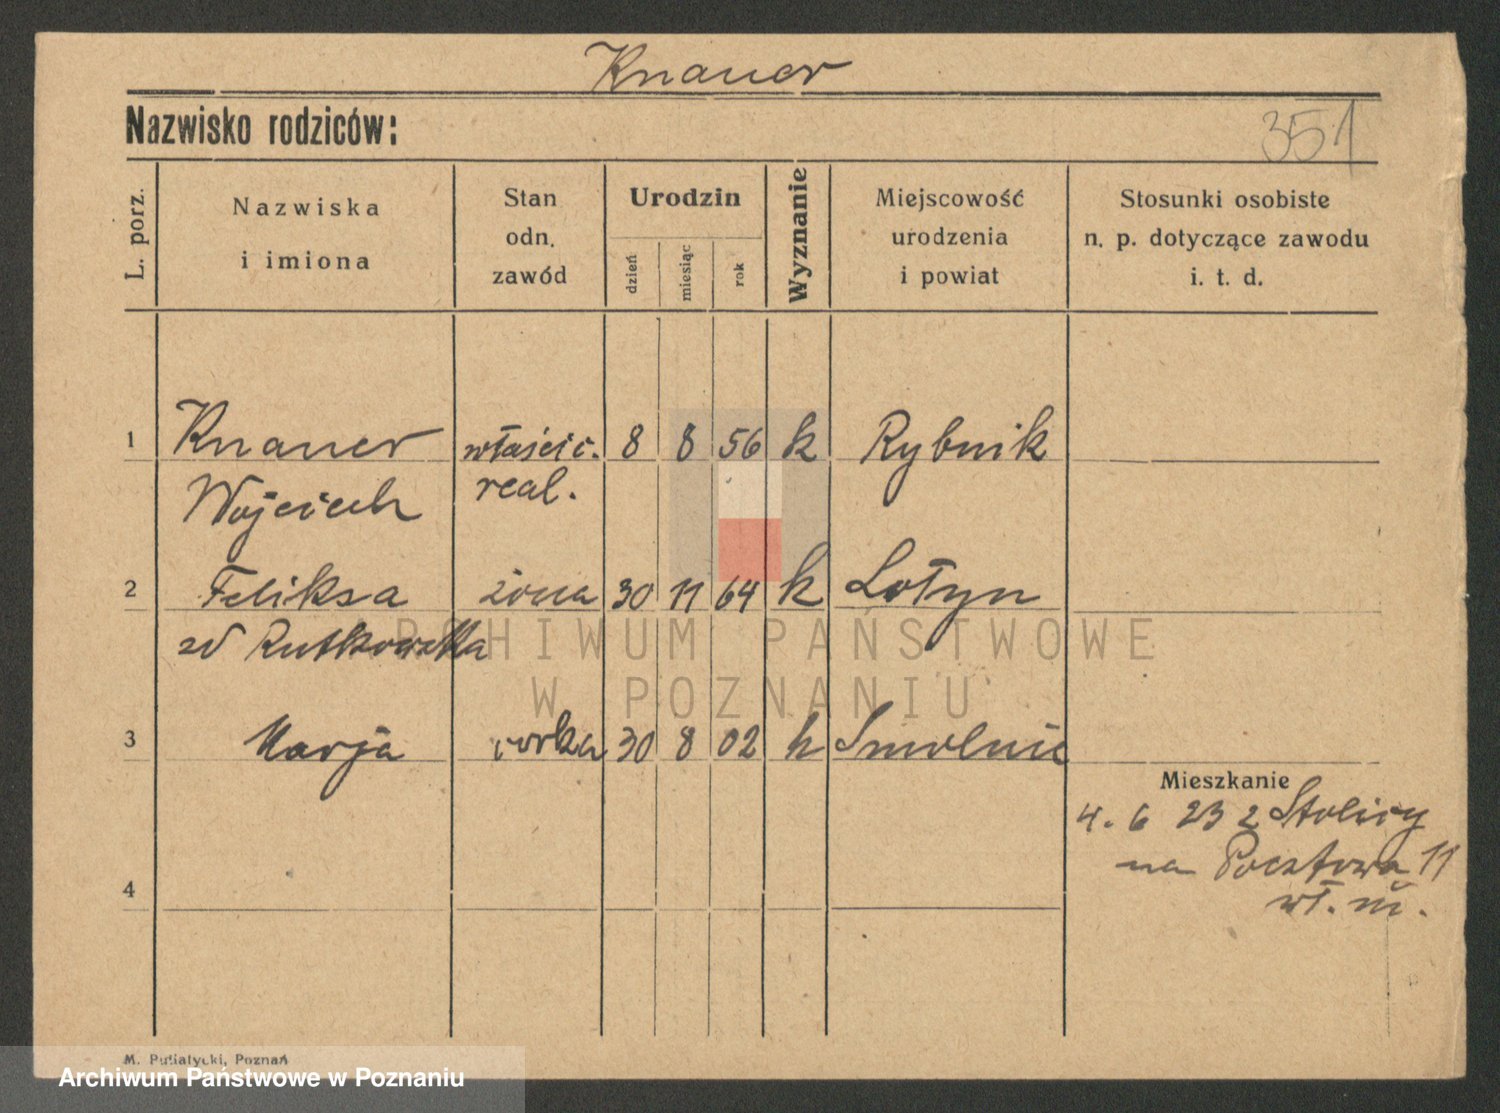 Knauer
Nazwisko rodziców:
351
L. porz.
Nazwiska
i imiona
Stan
odn.
zawód
Urodzin
dzień
miesiąc
rok
Wyznanie
Miejscowość
urodzenia
i powiat
Stosunki osobiste
n. p. dotyczące zawodu
i. t. d.
1 Knauer właścic. 8 8 56 k Rybnik
Wojciech real.
2 Feliksa żona 30 11 64 k Lotyn
zd Rutkowska
ARCHIWUM PAŃSTWOWE
W POZNANIU
3 Marja corka 30 8 02 k Smolnic
Mieszkanie
4. 6 23 z Stolicy
na Pocztowa 11
4
wł. m.
M. Putiatycki, Poznań
Archiwum Państwowe w Poznaniu